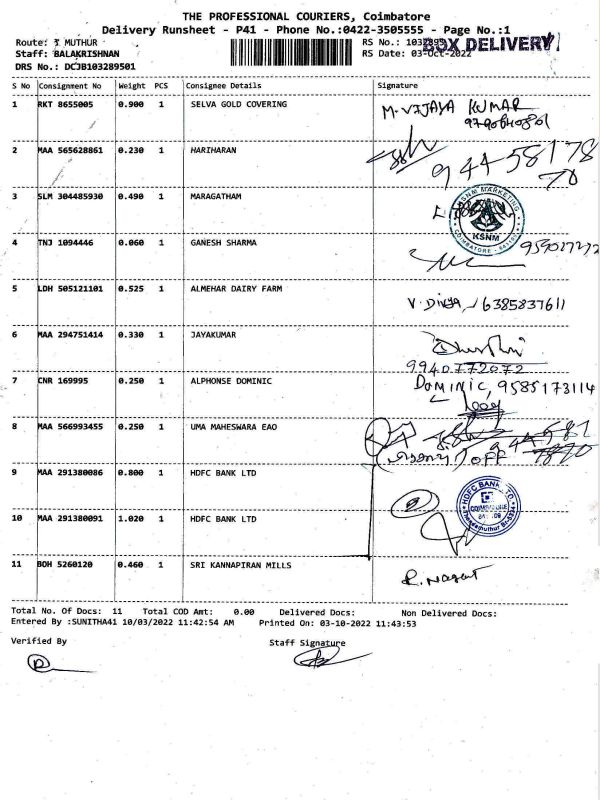 THE PROFESSIONAL COURIERS, Coimbatore
Delivery Runsheet - P41 - Phone No.:0422-3505555 - Page No.:1
Route: T MUTHUR
RS No.:
BOX DELIVERY
Staff: BALAKRISHNAN
RS Date: 03-Oct-2022
DRS No.: DCJB103289501
S No Consignment No Weight PCS Consignee Details Signature
1 RKT 8655005 0.900 1 SELVA GOLD COVERING M.VIJAYA KUMAR
2 MAA 565628861 0.230 1 HARIHARAN 94458178
70
3 SLM 304485930 0.490 1 MARAGATHAM
KSNM MARKETING
KSNM
COIMBATORE
4 TNJ 1094446 0.060 1 GANESH SHARMA
5 LDH 505121101 0.525 1 ALMEHAR DAIRY FARM V. DIVYA 6385837611
6 MAA 294751414 0.330 1 JAYAKUMAR
9940772072
7 CNR 169995 0.250 1 ALPHONSE DOMINIC DOMINIC, 9585173114
8 MAA 566993455 0.250 1 UMA MAHESWARA EAO
OFF
9 MAA 291380086 0.800 1 HDFC BANK LTD
HDFC BANK LTD
COIMBATORE
10 MAA 291380091 1.020 1 HDFC BANK LTD
11 BOH 5260120 0.460 1 SRI KANNAPIRAN MILLS
Total No. Of Docs: 11 Total COD Amt: 0.00 Delivered Docs: Non Delivered Docs:
Entered By :SUNITHA41 10/03/2022 11:42:54 AM Printed On: 03-10-2022 11:43:53
Verified By Staff Signature